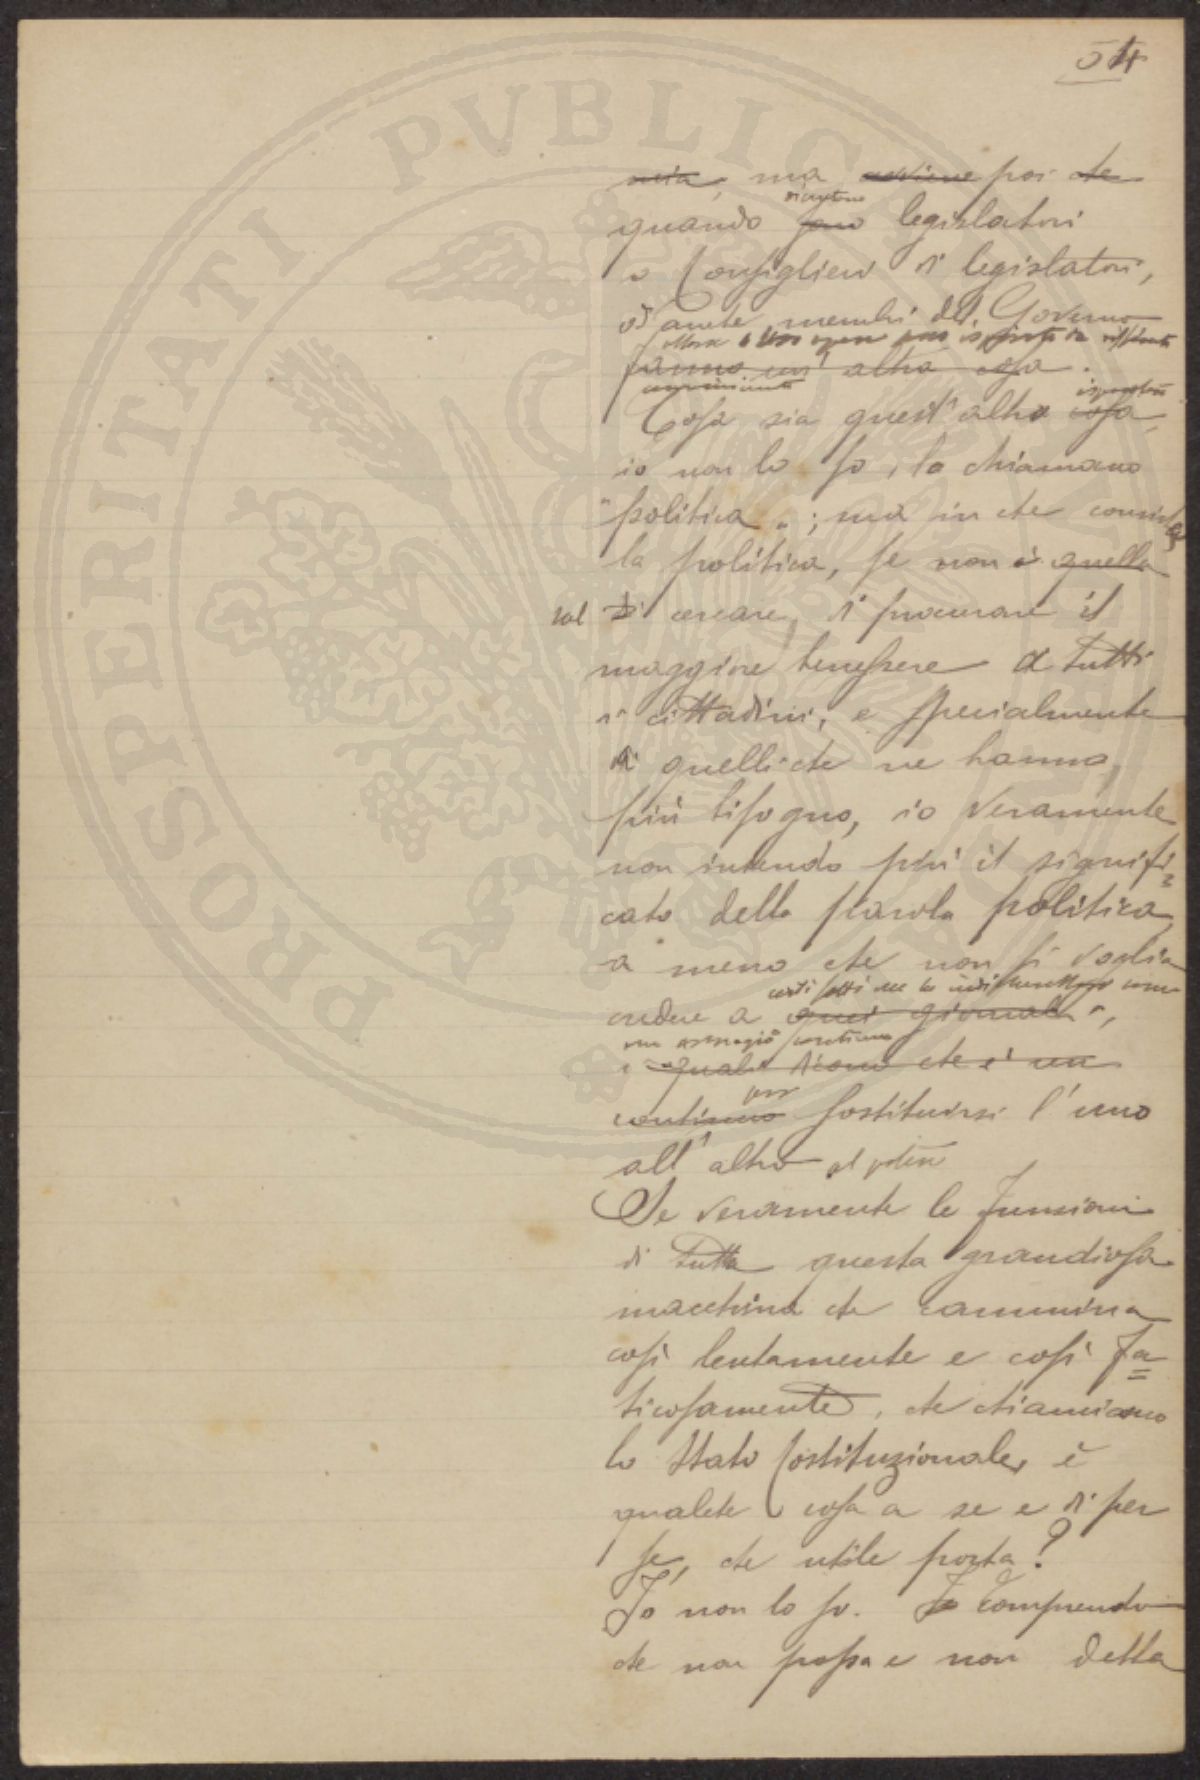 54
mia, ma avviene poi che
diventano
quando sono legislatori
o Consiglieri di legislatori,
od anche membri del Governo
allora
fanno un'altra cosa.
Cosa sia quest'altra cosa,
io non lo so, la chiamano
"politica"; ma in che consiste
la politica, se non è quella
di cercare, di procurare il
maggiore benessere a tutti
i cittadini, e specialmente
a quelli che ne hanno
più bisogno, io veramente
non intendo più il signifi=
cato della parola politica
a meno che non si voglia
credere a quei giornali,
i quali dicono che è un
per
continuo sostituirsi l'uno
all'altro al potere
Se veramente le funzioni
di tutta questa grandiosa
macchina che cammina
così lentamente e così fa=
ticosamente, che chiamiamo
lo Stato Costituzionale, è
qualche cosa a se e di per
se, che utile porta?
Io non lo so. Io comprendo
che non possa e non debba
PROSPERITATI PVBLICAE